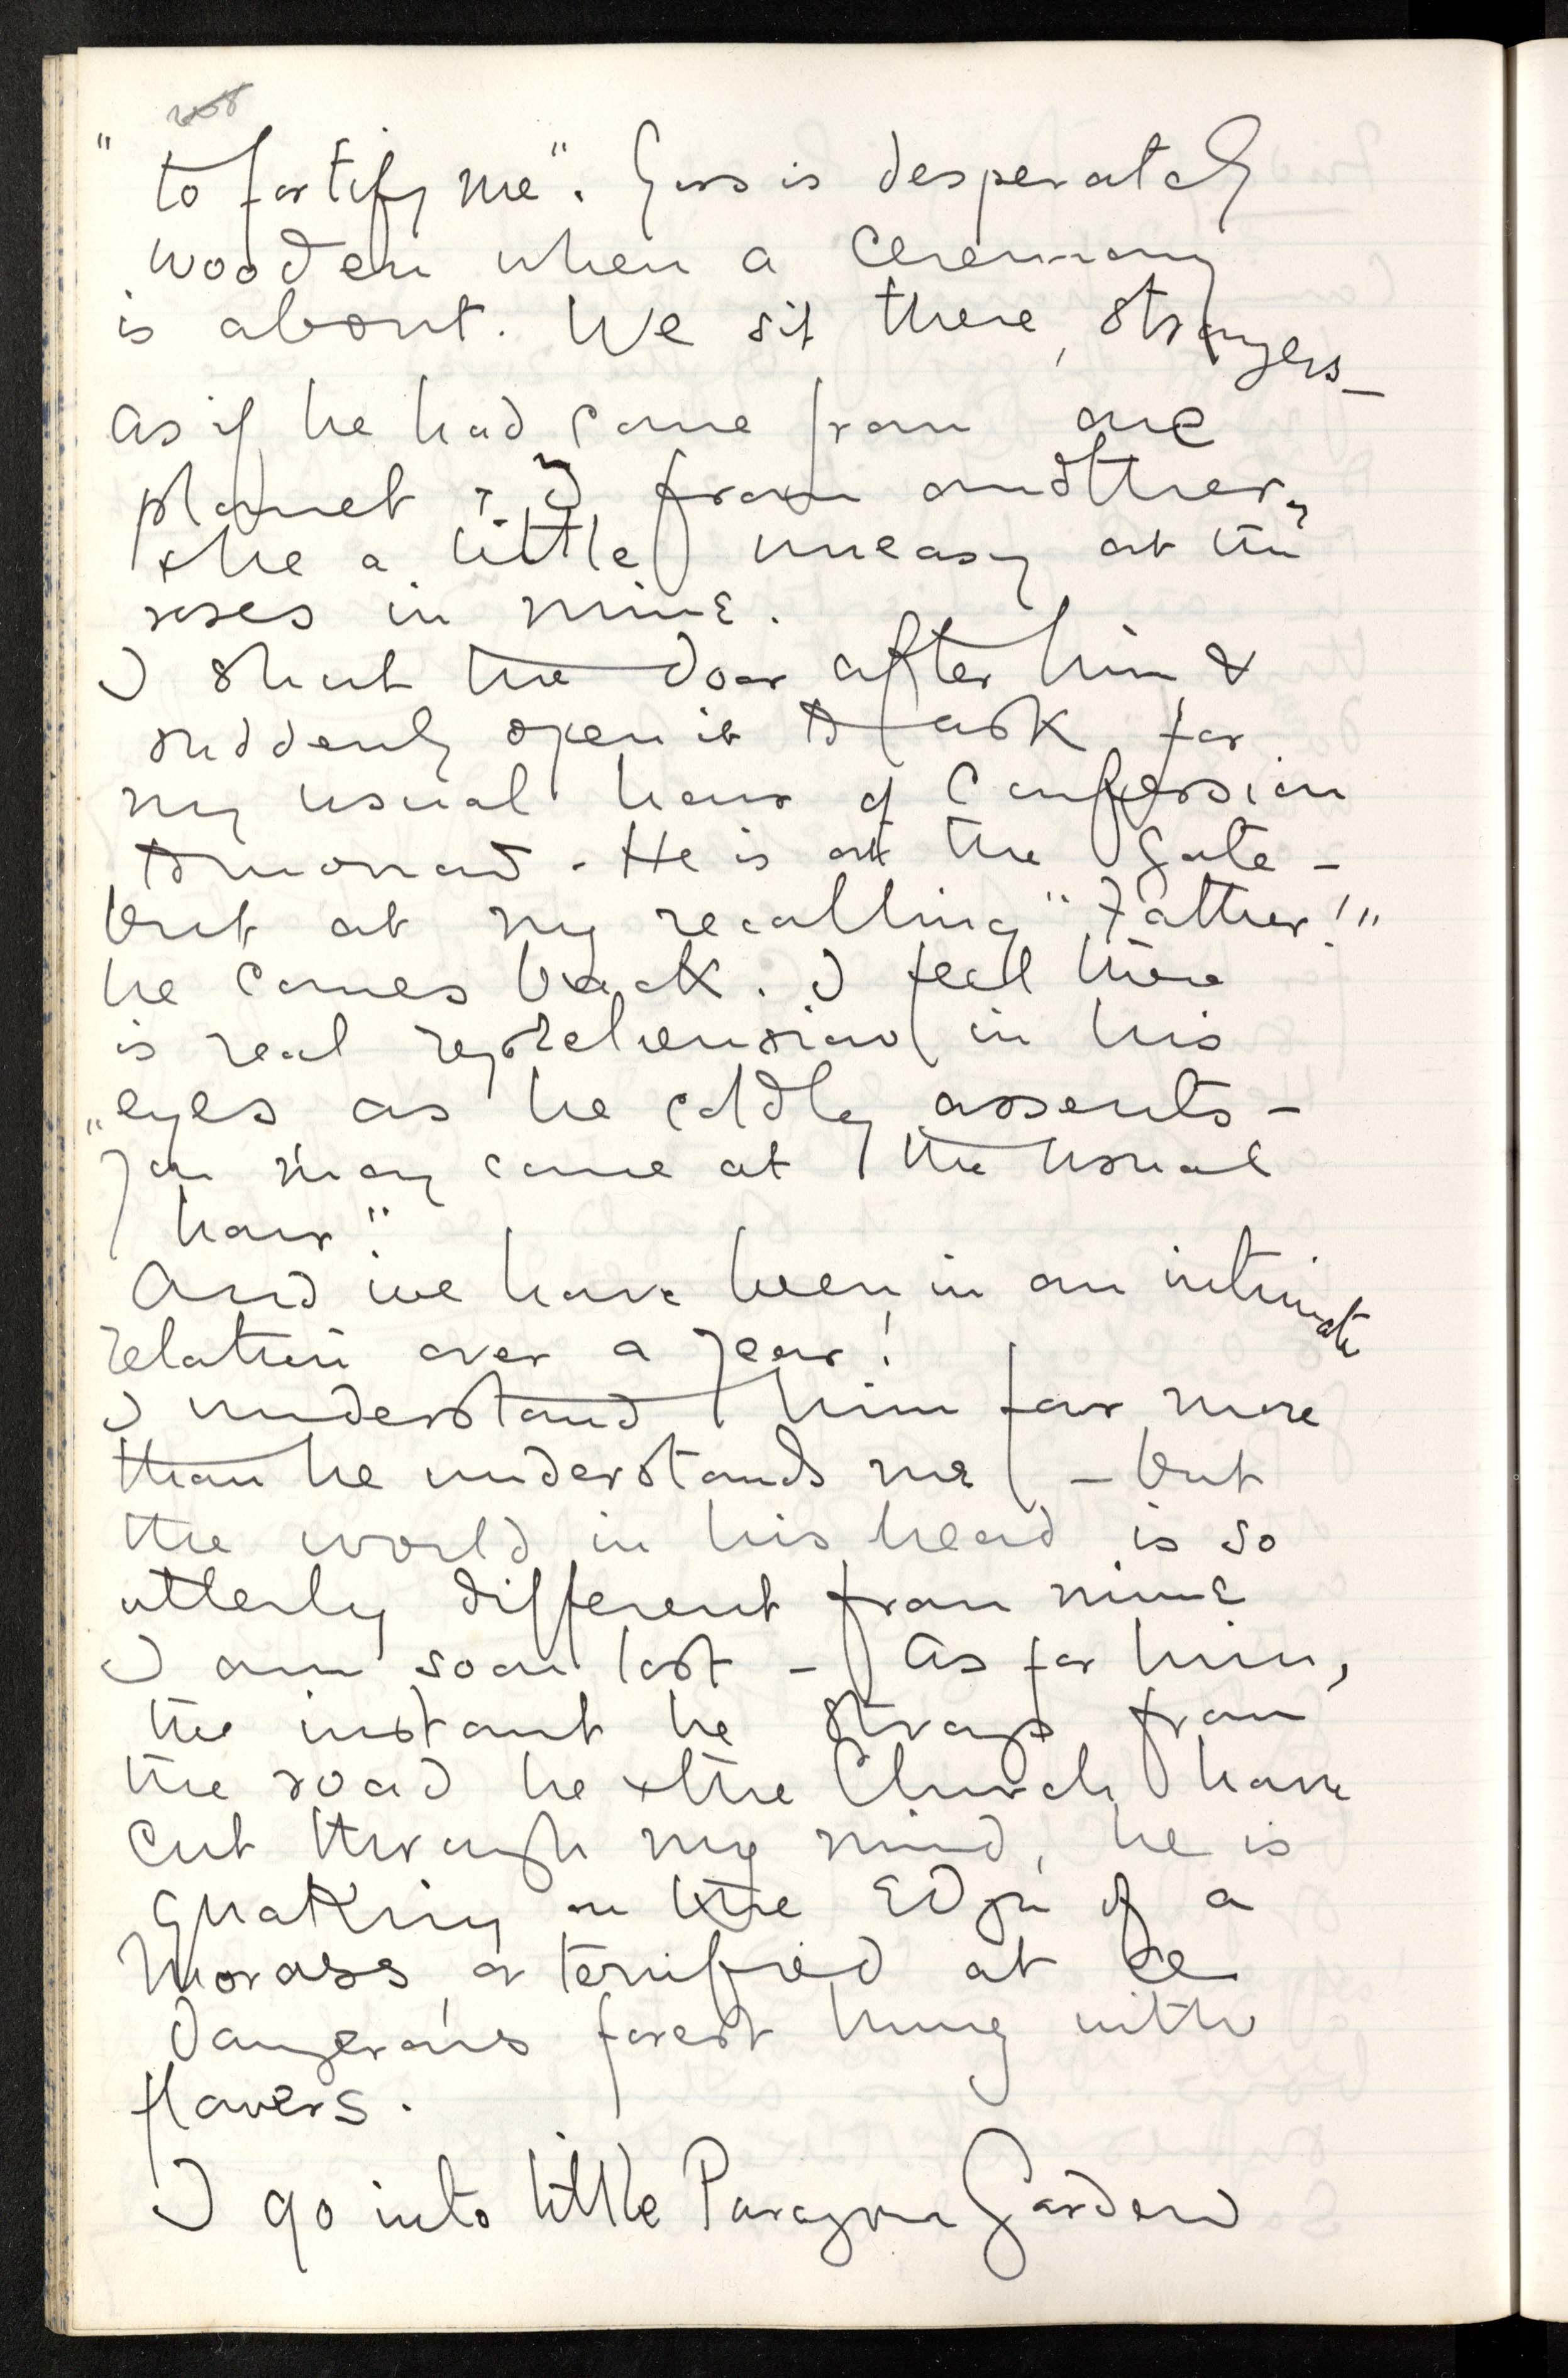 "to fortify me". Goss is desperately
wooden when a ceremony
is about. We sit there, strangers –
as if he had come from one
planet & I from another,
& he a little uneasy at the
roses in mine.
I shut the door after him &
suddenly open it to ask for
my usual hour of Confession
tomorrow. He is at the gate –
but at my recalling "Father!"
he comes back. I feel there
is real reprehension in his
eyes as he coldly assents –
"You may come at the usual
hour".
And we have been in an intimate
relation over a year!
I understand him far more
than he understands me – but
the world in his head is so
utterly different from mine
I am soon lost – As for him,
the instant he strays from
the road he & the Church have
cut through my mind, he is
quaking on the edge of a
morass, or terrified at
dangerous forest hung with
flowers.
I go into little Paragon Garden